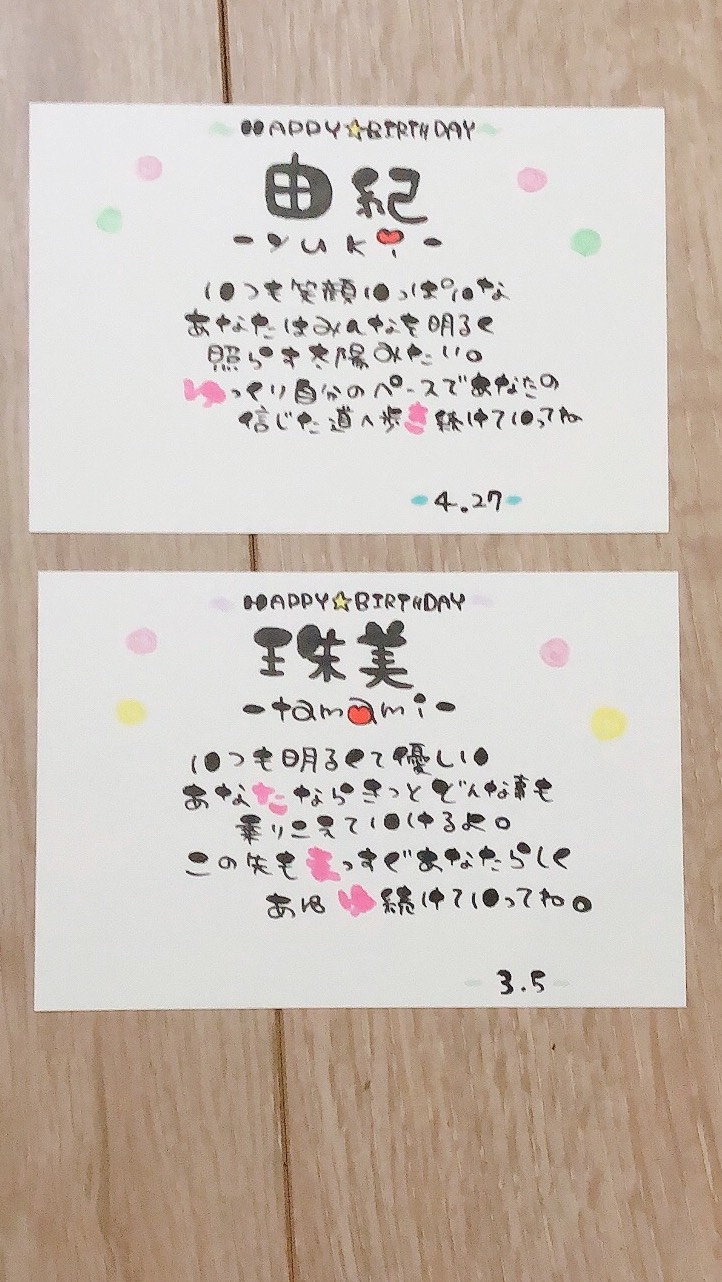 HAPPY☆BIRTHDAY
由紀
-yuki-
いつも笑顔いっぱいな
あなたはみんなを明るく
照らす太陽みたい。
ゆっくり自分のペースであなたの
信じた道へ歩き続けていってね
-4.27-
HAPPY☆BIRTHDAY
珠美
-tamami-
いつも明るくて優しい
あなたならきっとどんな事も
乗りこえていけるよ。
この先もまっすぐあなたらしく
あゆみ続けていってね。
-3.5-